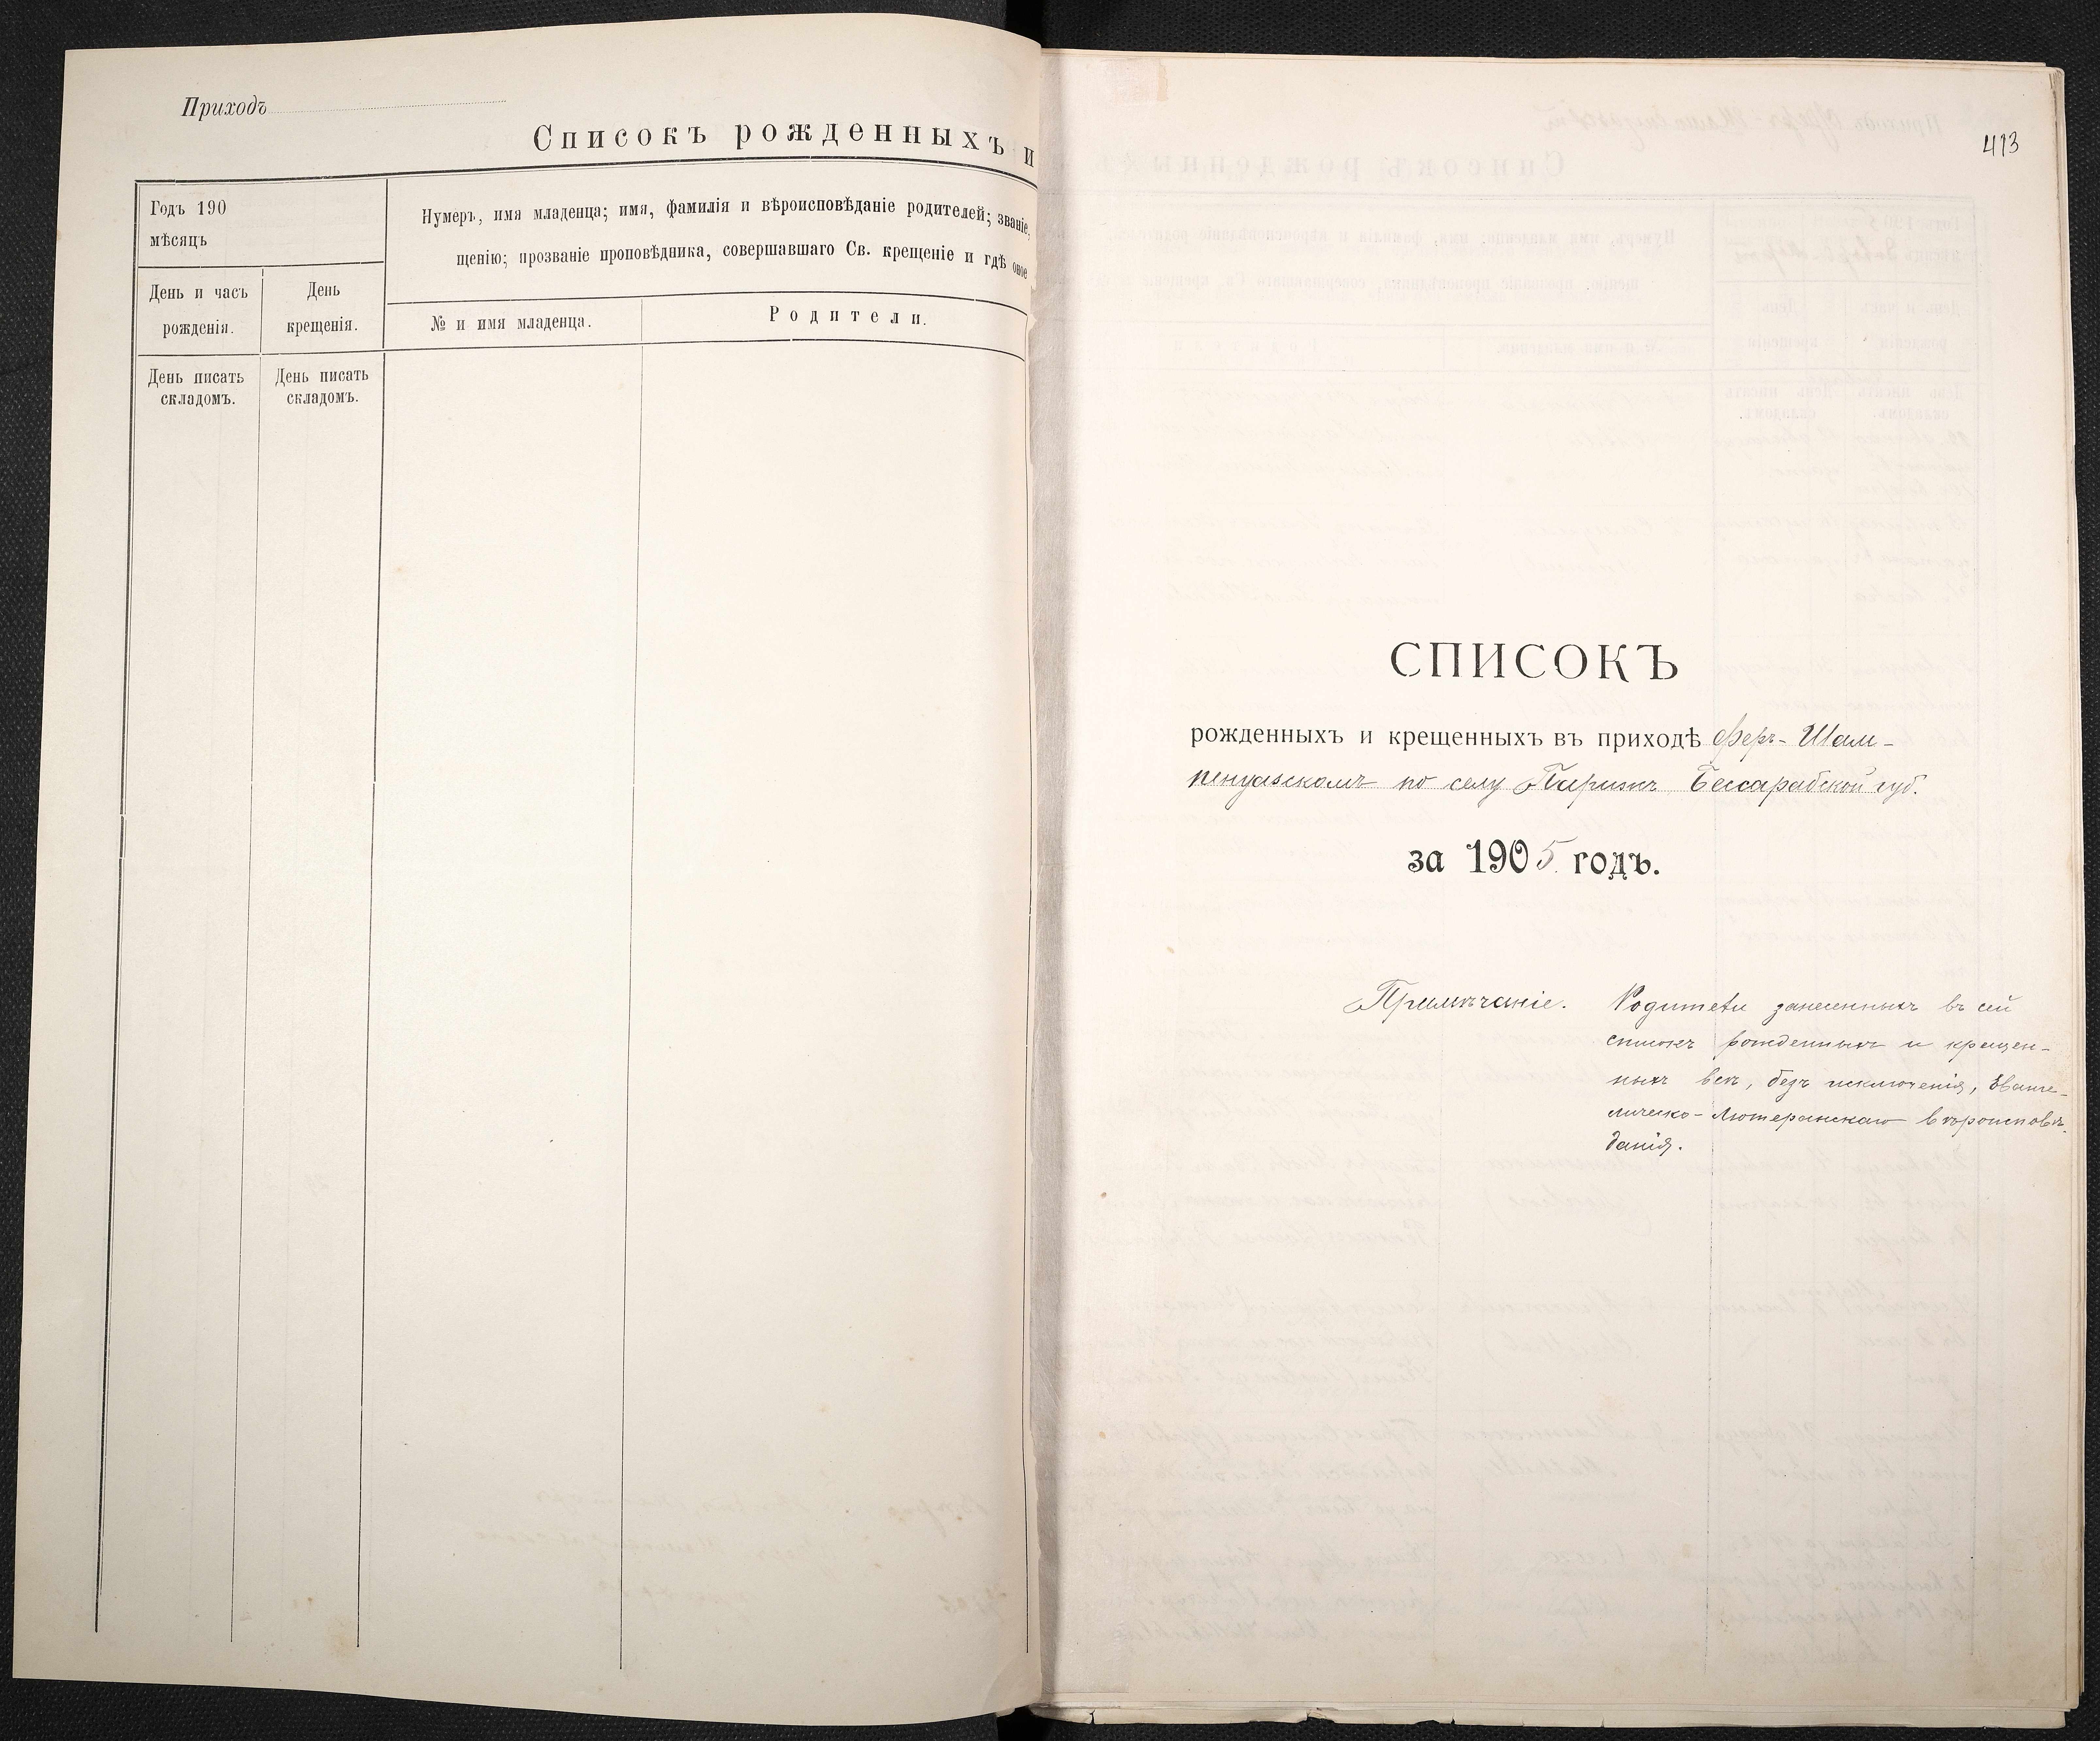 Приходъ
Списокъ рожденныхъ и
Годъ 190
мѣсяцъ
Нумеръ, имя младенца; имя, фамилія и вѣроисповѣданіе родителей; званіе,
щенію; прозваніе проповѣдника, совершавшаго Св. крещеніе и гдѣ оное
День и часъ
рожденія.
День
крещенія.
№ и имя младенца.
Родители.
День писать
складомъ.
День писать
складомъ.
413
СПИСОКЪ
рожденныхъ и крещенныхъ въ приходѣ Феръ-Шам-
пенуазскомъ по селу Парижъ Бессарабской губ.
за 1905 годъ.
Примѣчаніе. Родители занесенныхъ въ сей
списокъ рожденныхъ и крещен-
ныхъ всѣ, безъ исключенія, Еванге-
лическо-Лютеранскаго вѣроисповѣ-
данія.